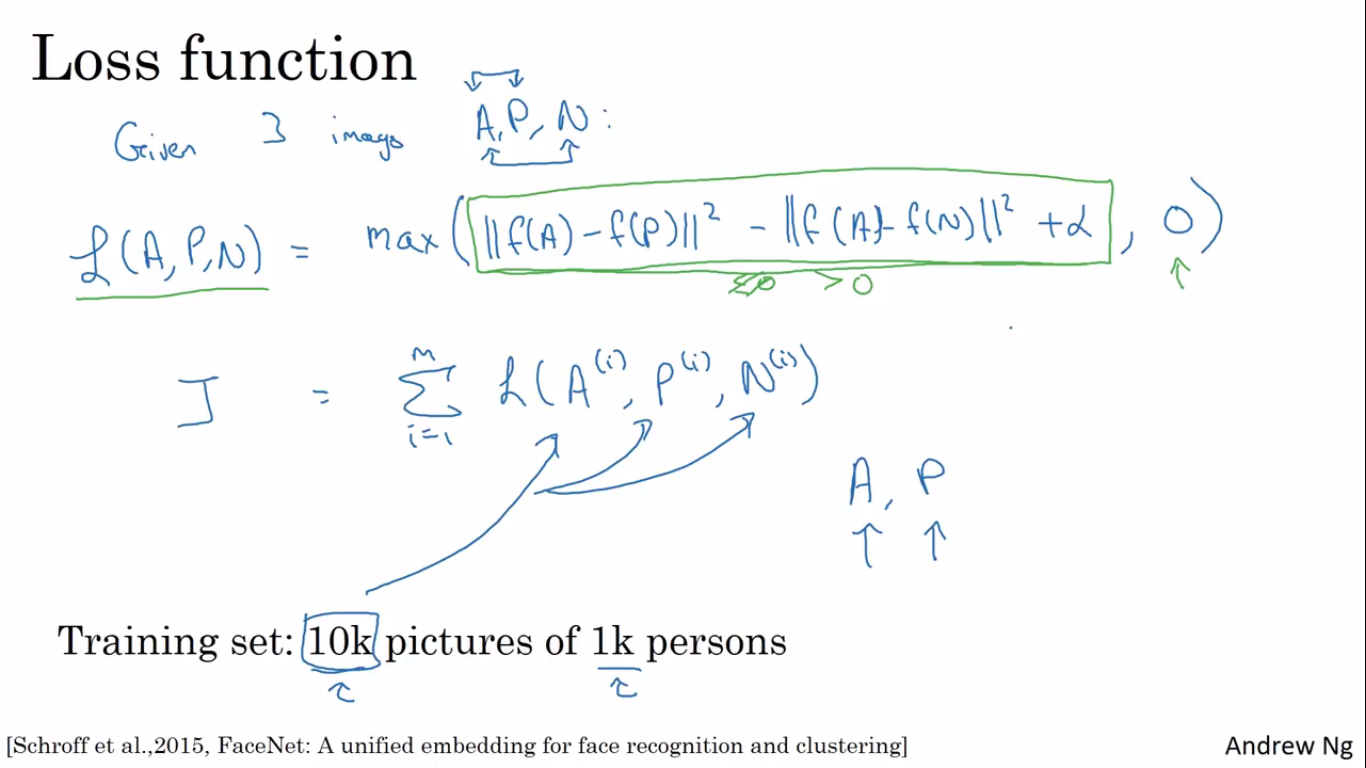 Loss function
Given 3 images A, P, N :
L(A, P, N) = max(||f(A) - f(P)||² - ||f(A) - f(N)||² + α, 0)
≤0 > 0 ↑
J = ∑ᵢ₌₁ᵐ L(A⁽ⁱ⁾, P⁽ⁱ⁾, N⁽ⁱ⁾)
A, P
↑ ↑
Training set: 10k pictures of 1k persons
[Schroff et al.,2015, FaceNet: A unified embedding for face recognition and clustering]
Andrew Ng